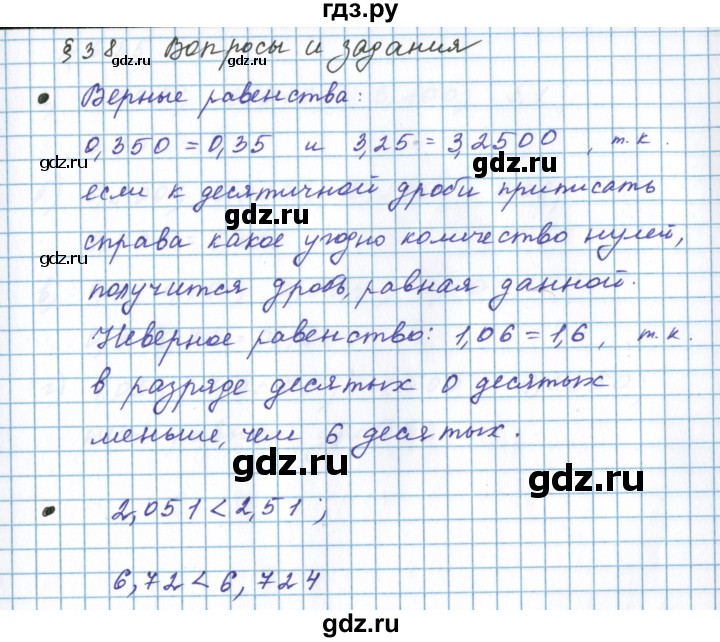 гдз.ру
§ 38 Вопросы и задания
• Верные равенства:
0,350 = 0,35 и 3,25 = 3,2500, т.к.
если к десятичной дроби приписать
справа какое угодно количество нулей,
получится дробь, равная данной.
Неверное равенство: 1,06 = 1,6, т.к.
в разряде десятых 0 десятых
меньше, чем 6 десятых.
• 2,051 < 2,51;
6,72 < 6,724
gdz.ru
gdz.ru
gdz.ru
gdz.ru
gdz.ru
gdz.ru
gdz.ru
gdz.ru
gdz.ru
gdz.ru
gdz.ru